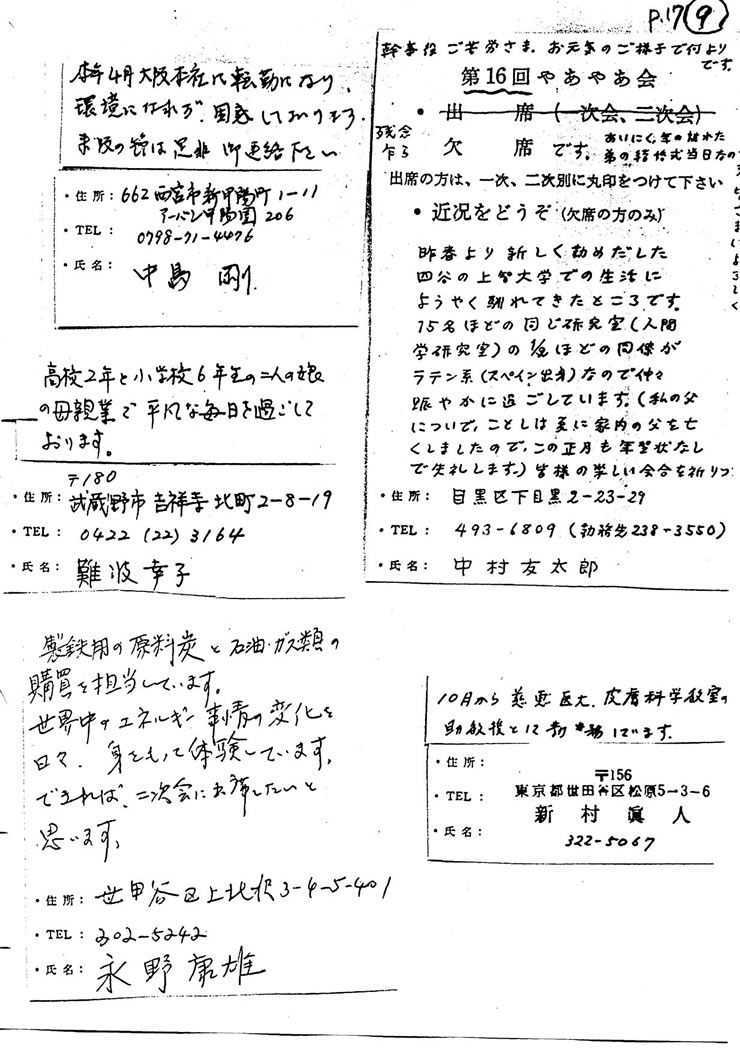 P.17 ⑨
本年4月大阪本社に転勤になり、
環境になれず、困惑しております。
来阪の節は是非御連絡下さい
・住所：662 西宮市新甲陽町1-11
アーバン甲陽園206
・TEL：0798-71-4476
・氏名：中島 剛
高校2年と小学校6年生の二人の娘
の母親業で平凡な毎日を過ごして
おります。
〒180
・住所：武蔵野市吉祥寺北町2-8-19
・TEL：0422 (22) 3164
・氏名：難波幸子
製鉄用の原料炭と石油・ガス類の
購買を担当しています。
世界中のエネルギー事情の変化を
日々、身をもって体験しています。
できれば、二次会に出席したいと
思います。
・住所：世田谷区上北沢3-4-5-401
・TEL：302-5242
・氏名：永野康雄
幹事役ご苦労さま。お元気のご様子で何より
です。
第16回やあやあ会
・出 席（一次会、二次会）
残念
乍ら
欠 席 です。
あいにく、年の離れた
弟の結婚式当日なの
出席の方は、一次、二次別に丸印をつけて下さい
・近況をどうぞ（欠席の方のみ）
昨春より新しく勤めだした
四谷の上智大学での生活に
ようやく馴れてきたところです。
15名ほどの同じ研究室（人間
学研究室）の1/2ほどの同僚が
ラテン系（スペイン出身）なので仲々
賑やかに過ごしています。（私の父
についで、ことしは更に家内の父を亡
くしましたので、この正月も年賀状なし
で失礼します。）皆様の楽しい会合を祈りつ
・住所：目黒区下目黒2-23-29
・TEL：493-6809（勤務先238-3550）
・氏名：中村友太郎
10月から慈恵医大、皮膚科学教室の
助教授として勤務しています。
・住所：
〒156
・TEL：東京都世田谷区松原5-3-6
新村眞人
・氏名：322-5067